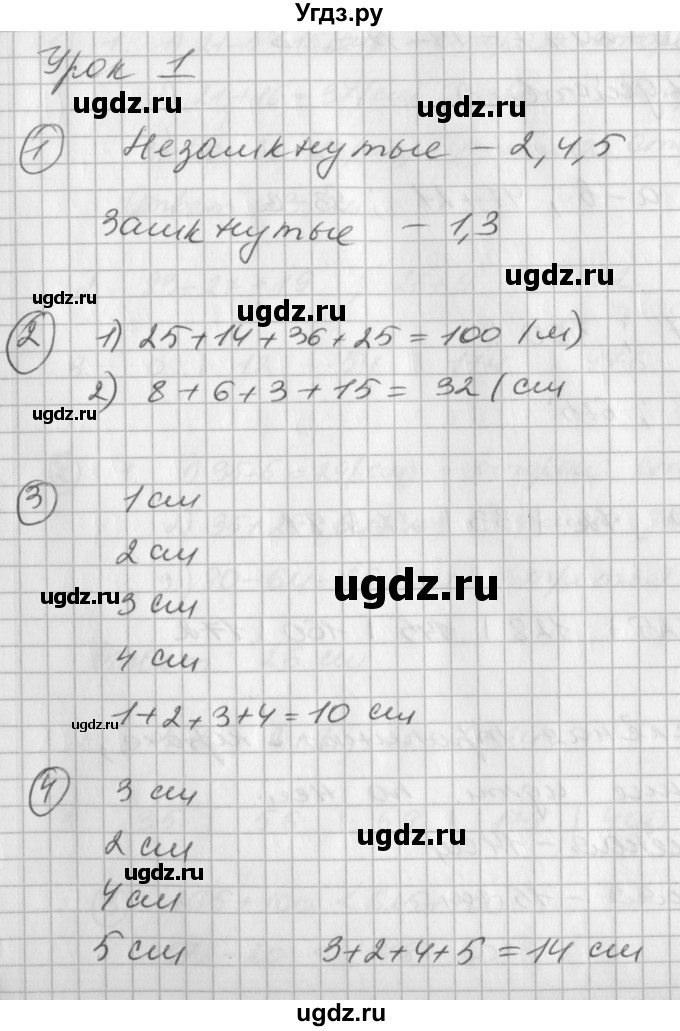 Угдз.ру
Урок 1
ugdz.ru
1 Незамкнутые - 2,4,5
Замкнутые - 1,3
ugdz.ru
ugdz.ru
ugdz.ru
2 1) 25+14+36+25=100 (м)
2) 8+6+3+15= 32 (см
ugdz.ru
3 1 см
2 см
ugdz.ru
ugdz.ru
3 см
4 см
ugdz.ru 1+2+3+4=10 см
4 3 см
ugdz.ru
2 см
ugdz.ru
4 см
5 см 3+2+4+5=14 см
ugdz.ru